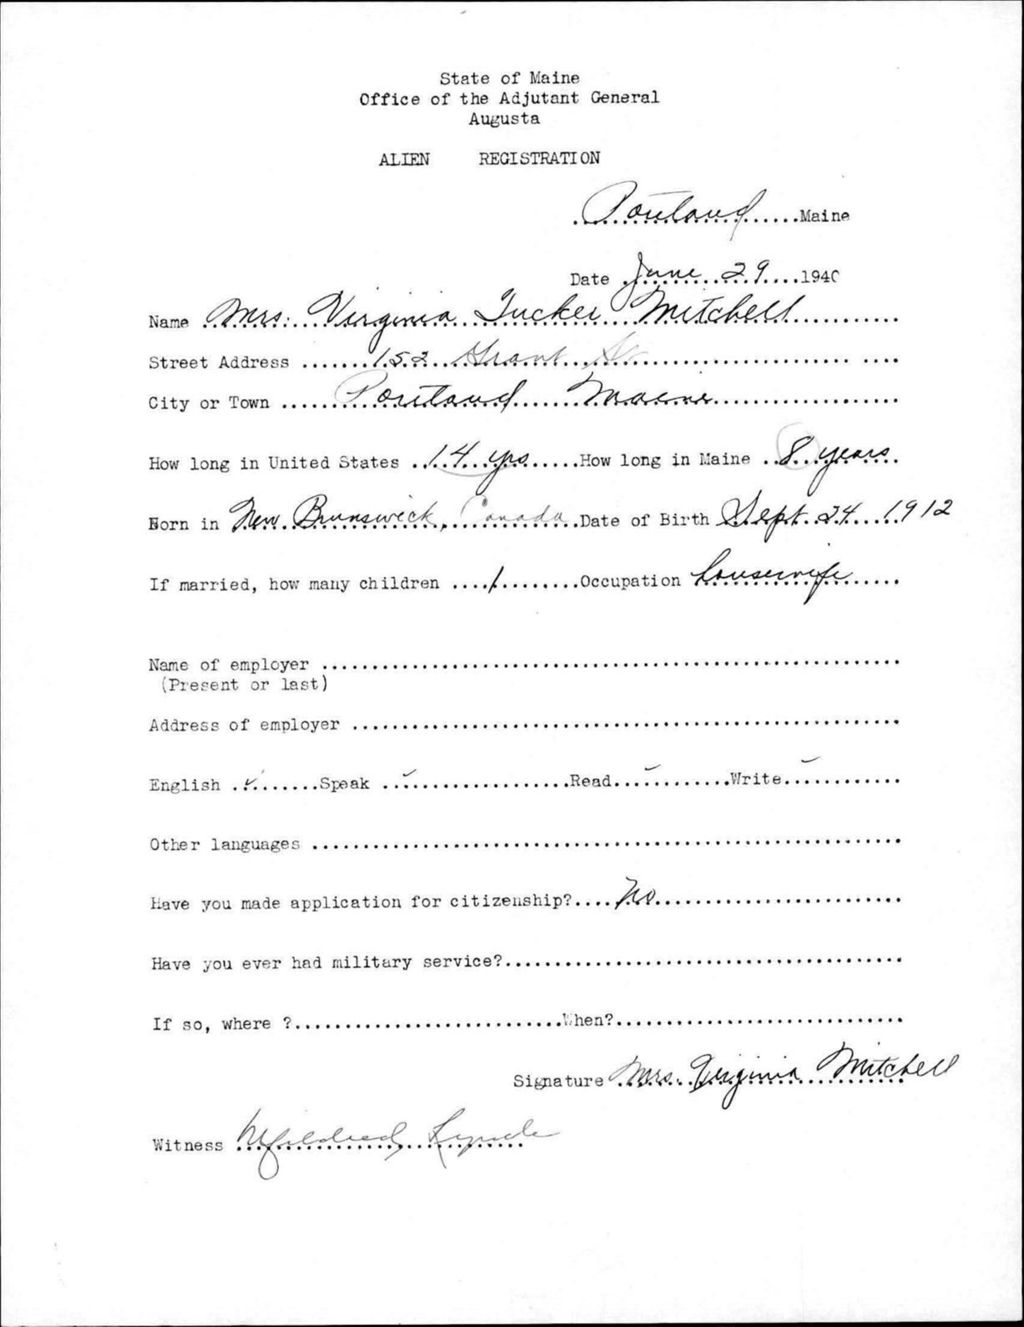 State of Maine
Office of the Adjutant General
Augusta
ALIEN REGISTRATION
Portland Maine
Date June 29 1940
Name Mrs. Virginia Tucker Mitchell
Street Address 152 Grant St
City or Town Portland Maine
How long in United States 14 yrs How long in Maine 8 years
Born in New Brunswick, Canada Date of Birth Sept. 24 1912
If married, how many children 1 Occupation housewife
Name of employer
(Present or last)
Address of employer
English ✓ Speak ✓ Read ✓ Write ✓
Other languages
Have you made application for citizenship? No
Have you ever had military service?
If so, where ? When?
Signature Mrs. Virginia Mitchell
Witness Mildred